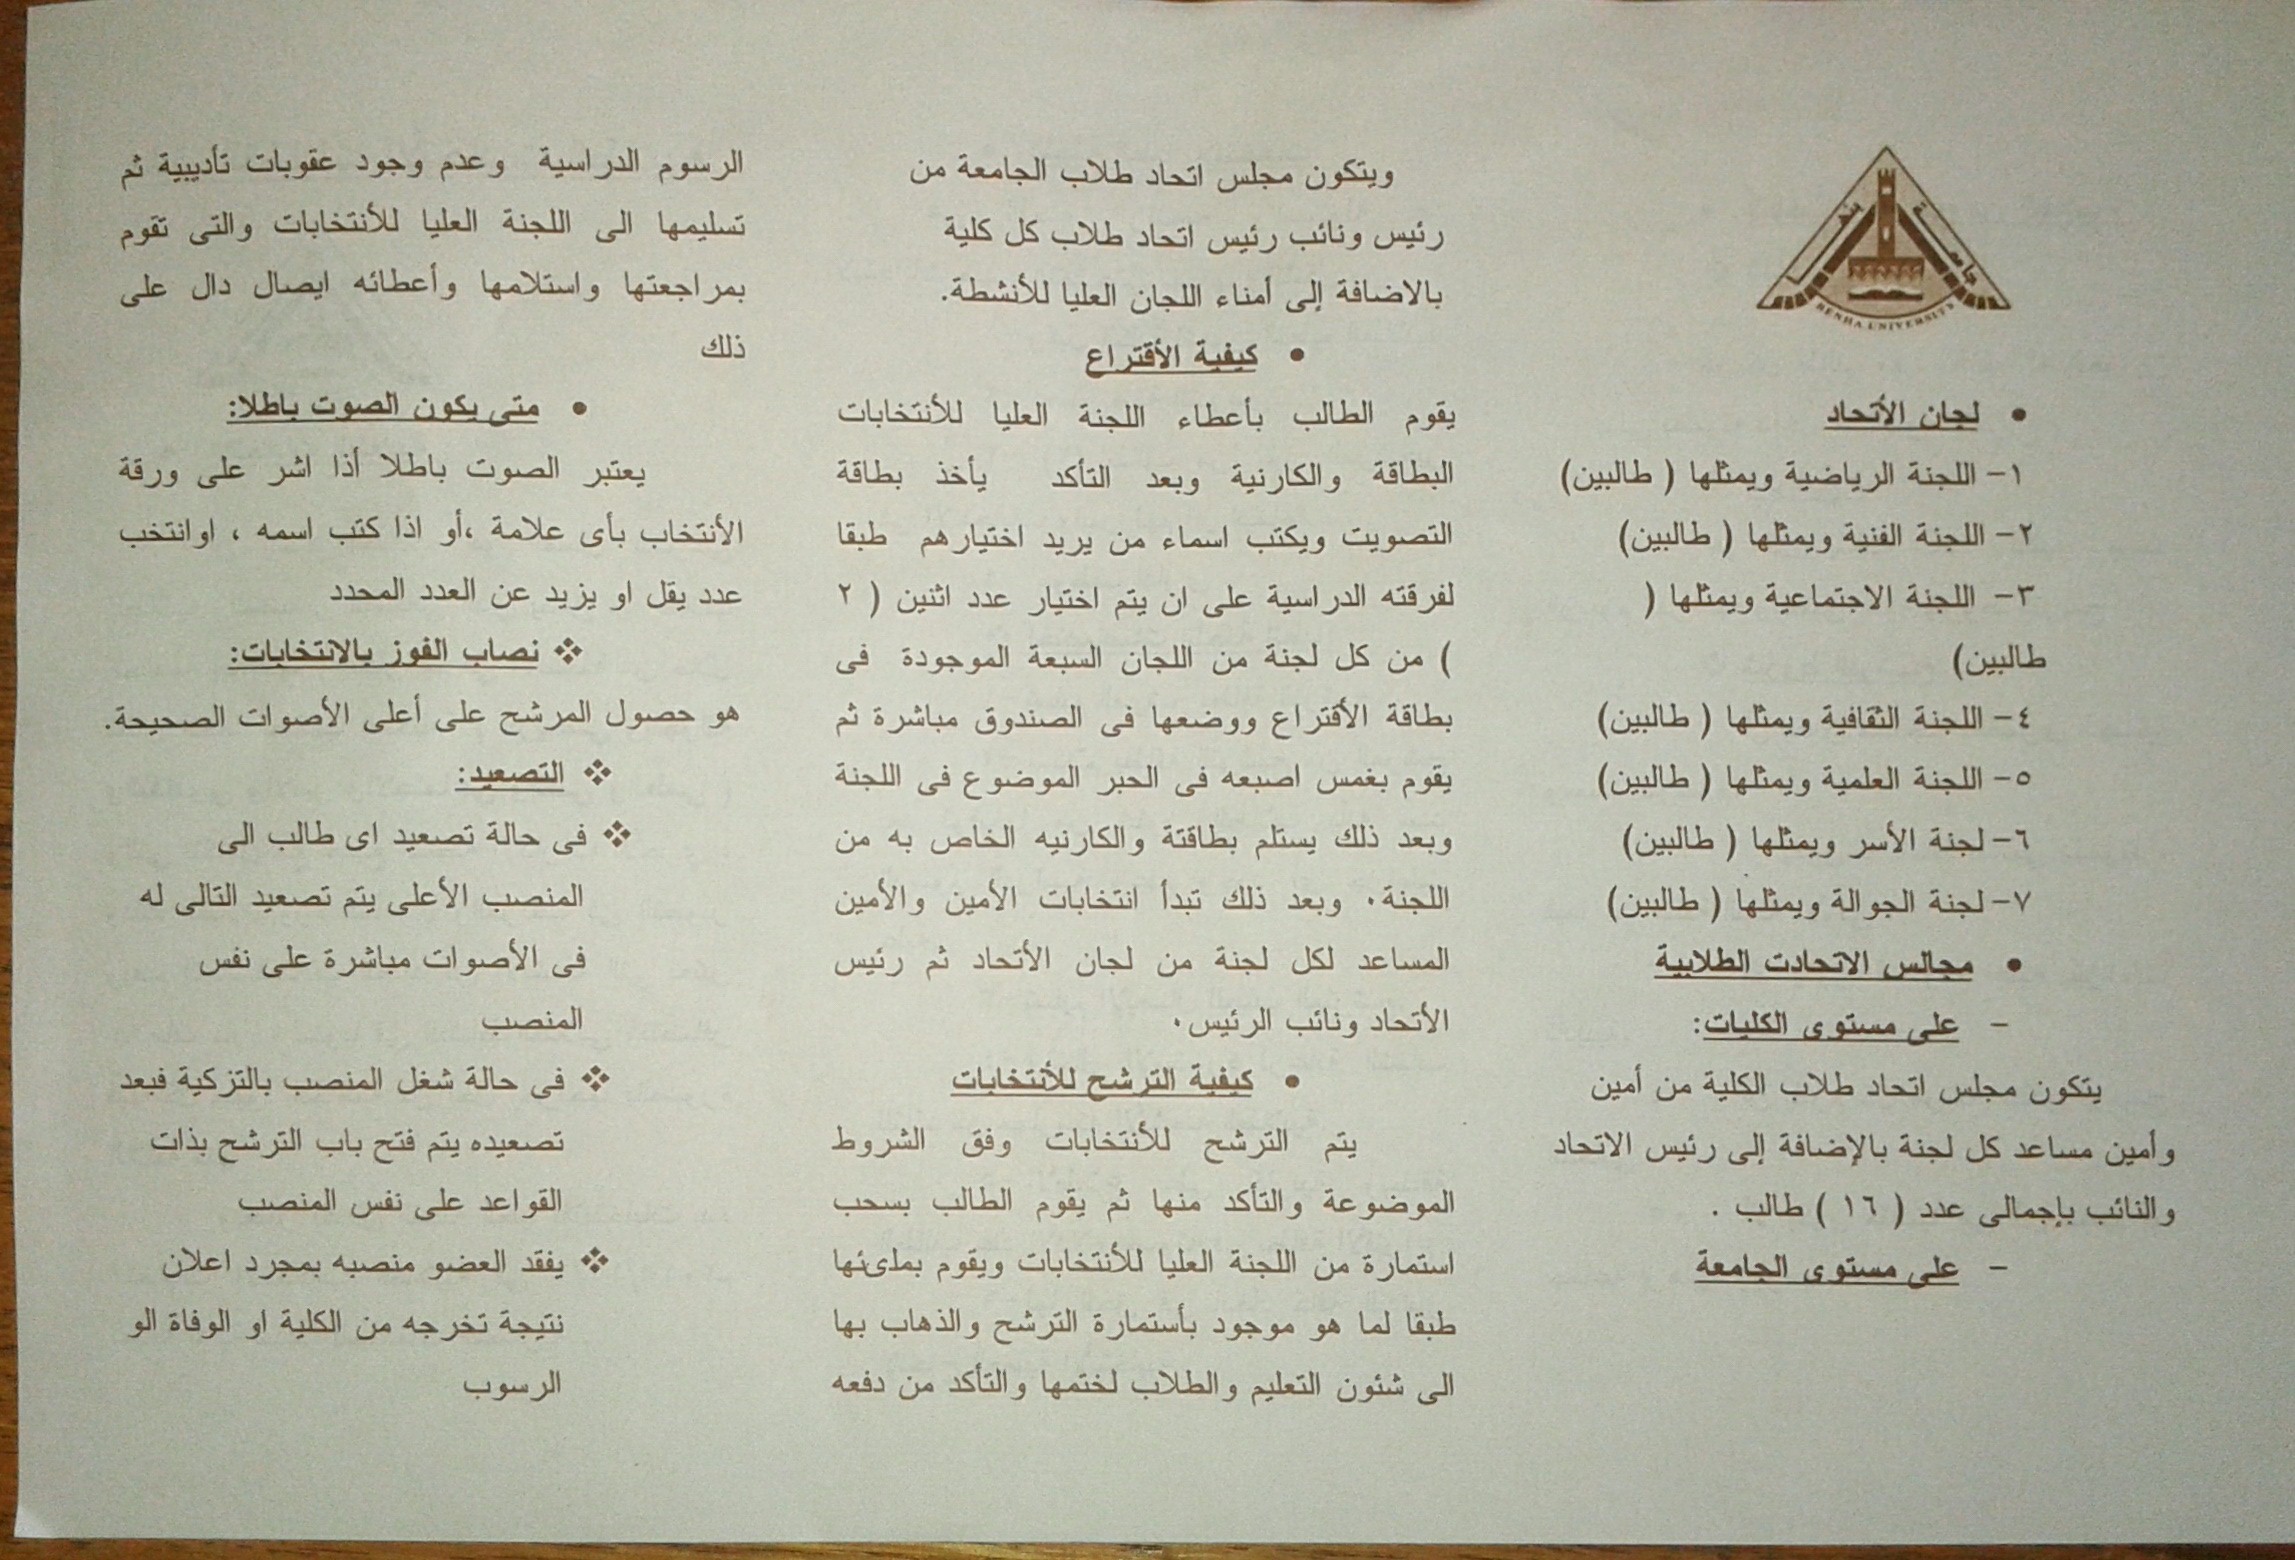 جامعة بنها
BENHA UNIVERSITY
• لجان الأتحاد
١- اللجنة الرياضية ويمثلها ( طالبين)
٢- اللجنة الفنية ويمثلها ( طالبين)
٣- اللجنة الاجتماعية ويمثلها (
طالبين)
٤- اللجنة الثقافية ويمثلها ( طالبين)
٥- اللجنة العلمية ويمثلها ( طالبين)
٦- لجنة الأسر ويمثلها ( طالبين)
٧- لجنة الجوالة ويمثلها ( طالبين)
• مجالس الاتحادت الطلابية
- على مستوى الكليات:
يتكون مجلس اتحاد طلاب الكلية من أمين
وأمين مساعد كل لجنة بالإضافة إلى رئيس الاتحاد
والنائب بإجمالى عدد ( ١٦ ) طالب .
- على مستوى الجامعة
ويتكون مجلس اتحاد طلاب الجامعة من
رئيس ونائب رئيس اتحاد طلاب كل كلية
بالاضافة إلى أمناء اللجان العليا للأنشطة.
• كيفية الأقتراع
يقوم الطالب بأعطاء اللجنة العليا للأنتخابات
البطاقة والكارنية وبعد التأكد يأخذ بطاقة
التصويت ويكتب اسماء من يريد اختيارهم طبقا
لفرقته الدراسية على ان يتم اختيار عدد اثنين ( ٢
) من كل لجنة من اللجان السبعة الموجودة فى
بطاقة الأقتراع ووضعها فى الصندوق مباشرة ثم
يقوم بغمس اصبعه فى الحبر الموضوع فى اللجنة
وبعد ذلك يستلم بطاقتة والكارنيه الخاص به من
اللجنة٠ وبعد ذلك تبدأ انتخابات الأمين والأمين
المساعد لكل لجنة من لجان الأتحاد ثم رئيس
الأتحاد ونائب الرئيس٠
• كيفية الترشح للأنتخابات
يتم الترشح للأنتخابات وفق الشروط
الموضوعة والتأكد منها ثم يقوم الطالب بسحب
استمارة من اللجنة العليا للأنتخابات ويقوم بملىئها
طبقا لما هو موجود بأستمارة الترشح والذهاب بها
الى شئون التعليم والطلاب لختمها والتأكد من دفعه
الرسوم الدراسية وعدم وجود عقوبات تأديبية ثم
تسليمها الى اللجنة العليا للأنتخابات والتى تقوم
بمراجعتها واستلامها وأعطائه ايصال دال على
ذلك
• متى يكون الصوت باطلا:
يعتبر الصوت باطلا أذا اشر على ورقة
الأنتخاب بأى علامة ،أو اذا كتب اسمه ، اوانتخب
عدد يقل او يزيد عن العدد المحدد
❖ نصاب الفوز بالانتخابات:
هو حصول المرشح على أعلى الأصوات الصحيحة.
❖ التصعيد:
❖ فى حالة تصعيد اى طالب الى
المنصب الأعلى يتم تصعيد التالى له
فى الأصوات مباشرة على نفس
المنصب
❖ فى حالة شغل المنصب بالتزكية فبعد
تصعيده يتم فتح باب الترشح بذات
القواعد على نفس المنصب
❖ يفقد العضو منصبه بمجرد اعلان
نتيجة تخرجه من الكلية او الوفاة الو
الرسوب